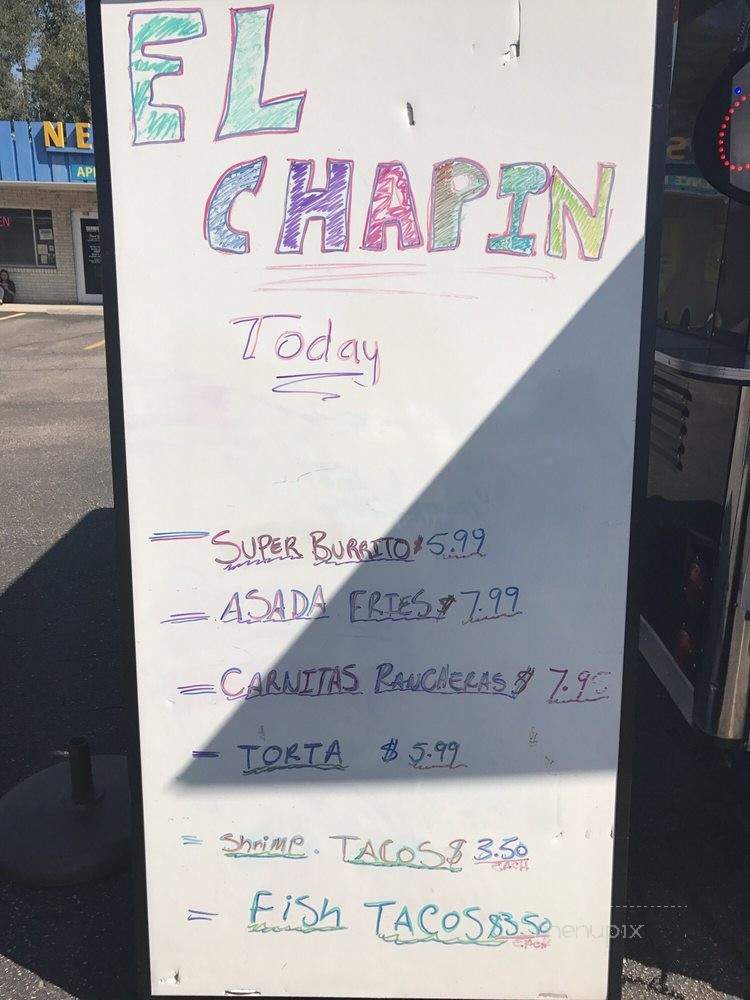 EL
CHAPIN
Today
= SUPER BURRITO $5.99
= ASADA FRIES $ 7.99
= CARNITAS RANCHERAS $ 7.95
- TORTA $ 5.99
= Shrimp. TACOS $ 3.50
EACH
= Fish TACOS $3.50
EACH
NE
AP
EN
menupix